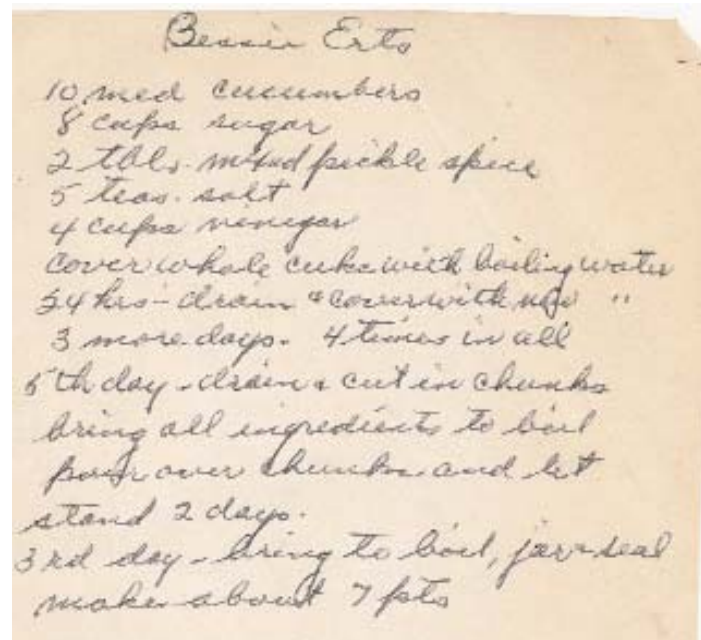 Bessie Erts
10 med cucumbers
8 cups sugar
2 tbls. mixed pickle spice
5 teas. salt
4 cups vinegar
cover whole cukes with boiling water
24 hrs - drain & cover with new "
3 more days. 4 times in all
5th day - drain & cut in chunks
bring all ingredients to boil
pour over chunks and let
stand 2 days.
3rd day - bring to boil, jar & seal
makes about 7 pts